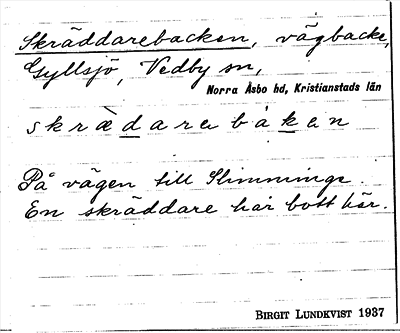 Skräddarebacken, vägbacke,
Gyllsjö, Vedby sn,
Norra Åsbo hd, Kristianstads län
skrædarebaken
På vägen till Slimminge.
En skräddare har bott här.
BIRGIT LUNDKVIST 1937